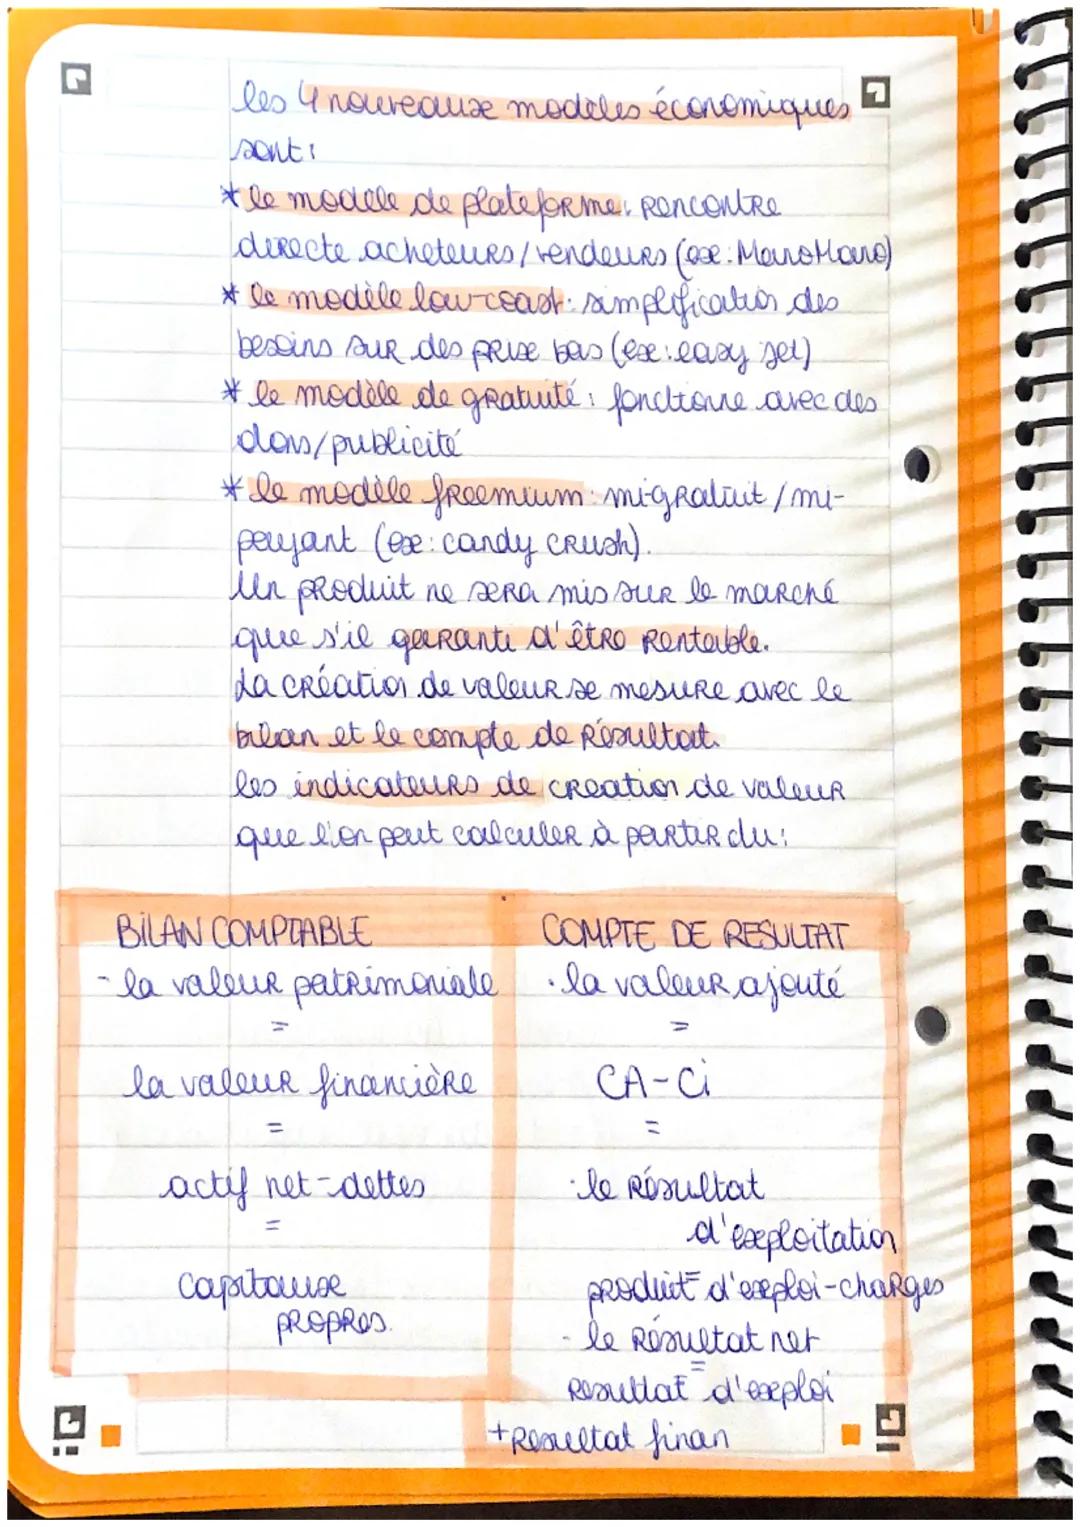 les 4 nouveaux modèles économiques
sont:
* le modèle de plateforme: rencontre
directe acheteurs/vendeurs (ex: ManoMano)
* le modèle low-coast: simplification des
besoins sur des prix bas (ex: easy jet)
* le modèle de gratuité: fonctionne avec des
dons/publicité
* le modèle freemium: mi-gratuit/mi-
payant (ex: candy crush).
Un produit ne sera mis sur le marché
que s'il garanti d'être rentable.
La création de valeur se mesure avec le
bilan et le compte de résultat.
les indicateurs de creation de valeur
que l'on peut calculer à partir du:
BILAN COMPTABLE
- la valeur patrimoniale
=
la valeur financière
=
actif net-dettes
=
Capitaux
propres.
COMPTE DE RESULTAT
· la valeur ajouté
=
CA-Ci
=
· le résultat
d'exploitation
=
produit d'exploi-charges
- le résultat net
=
Resultat d'exploi
+Resultat finan